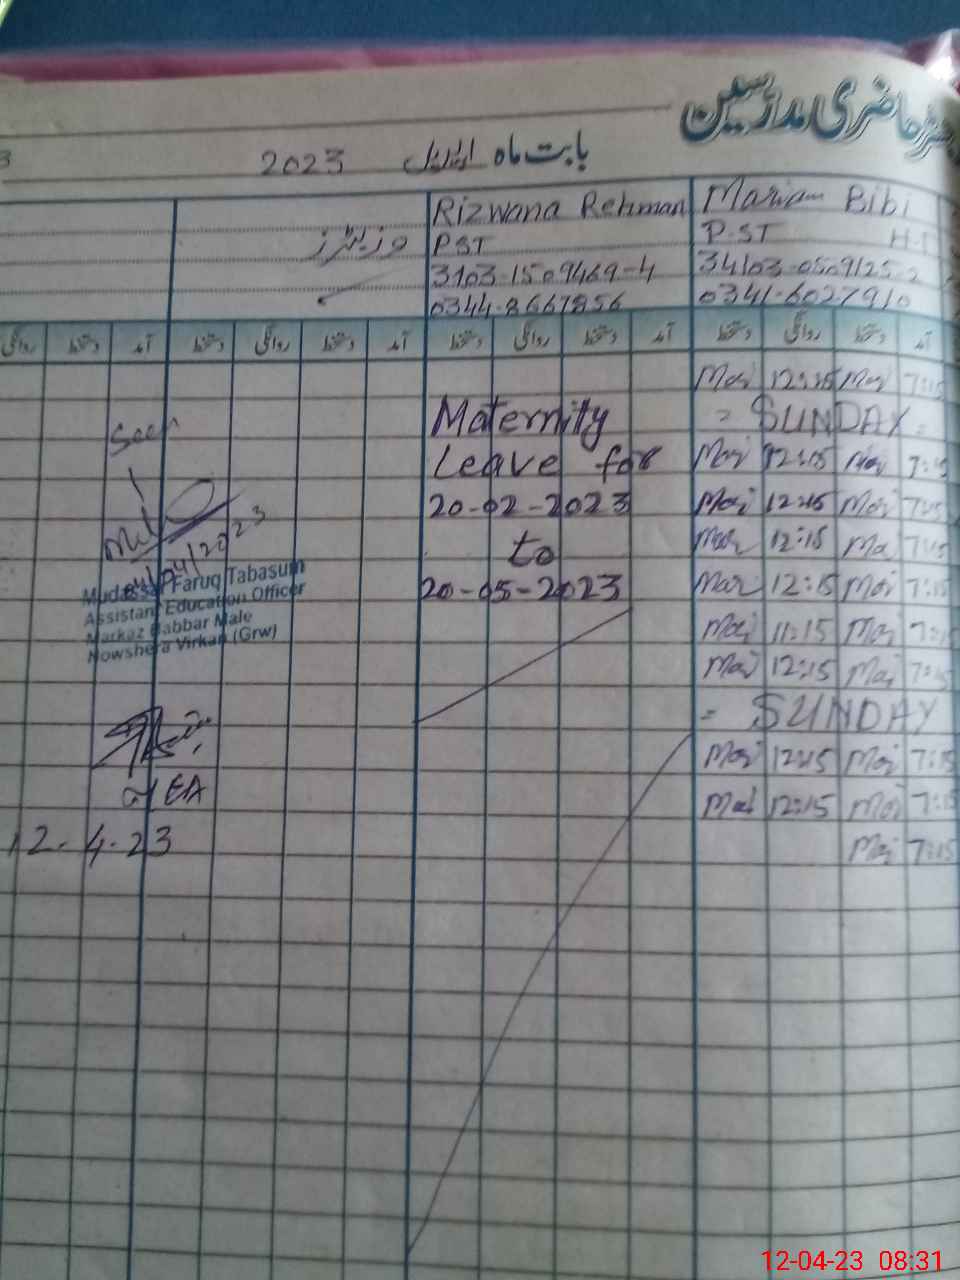 حاضری مدرسین
بابت ماہ اپریل 2023
3
Rizwana Rehman
PST
3103-1509469-4
0344-8667856
Mariam Bibi
P.ST H-T
34103-0509125-2
0341-6027910
وزیٹرز
روانگی دستخط آمد دستخط روانگی دستخط آمد دستخط روانگی دستخط آمد دستخط روانگی دستخط آمد
Maternity
Leave for
20-02-2023
to
20-05-2023
12:15 7:15
= SUNDAY =
12:15 7:15
12:15 7:15
12:15 7:15
12:15 7:15
11:15 7:15
12:15 7:15
= SUNDAY
12:15 7:15
12:15 7:15
7:15
Seen
04/04/2023
Mudassar Faruq Tabasum
Assistant Education Officer
Markaz Babbar Male
Nowshera Virkan (Grw)
EA
12-4-23
12-04-23 08:31